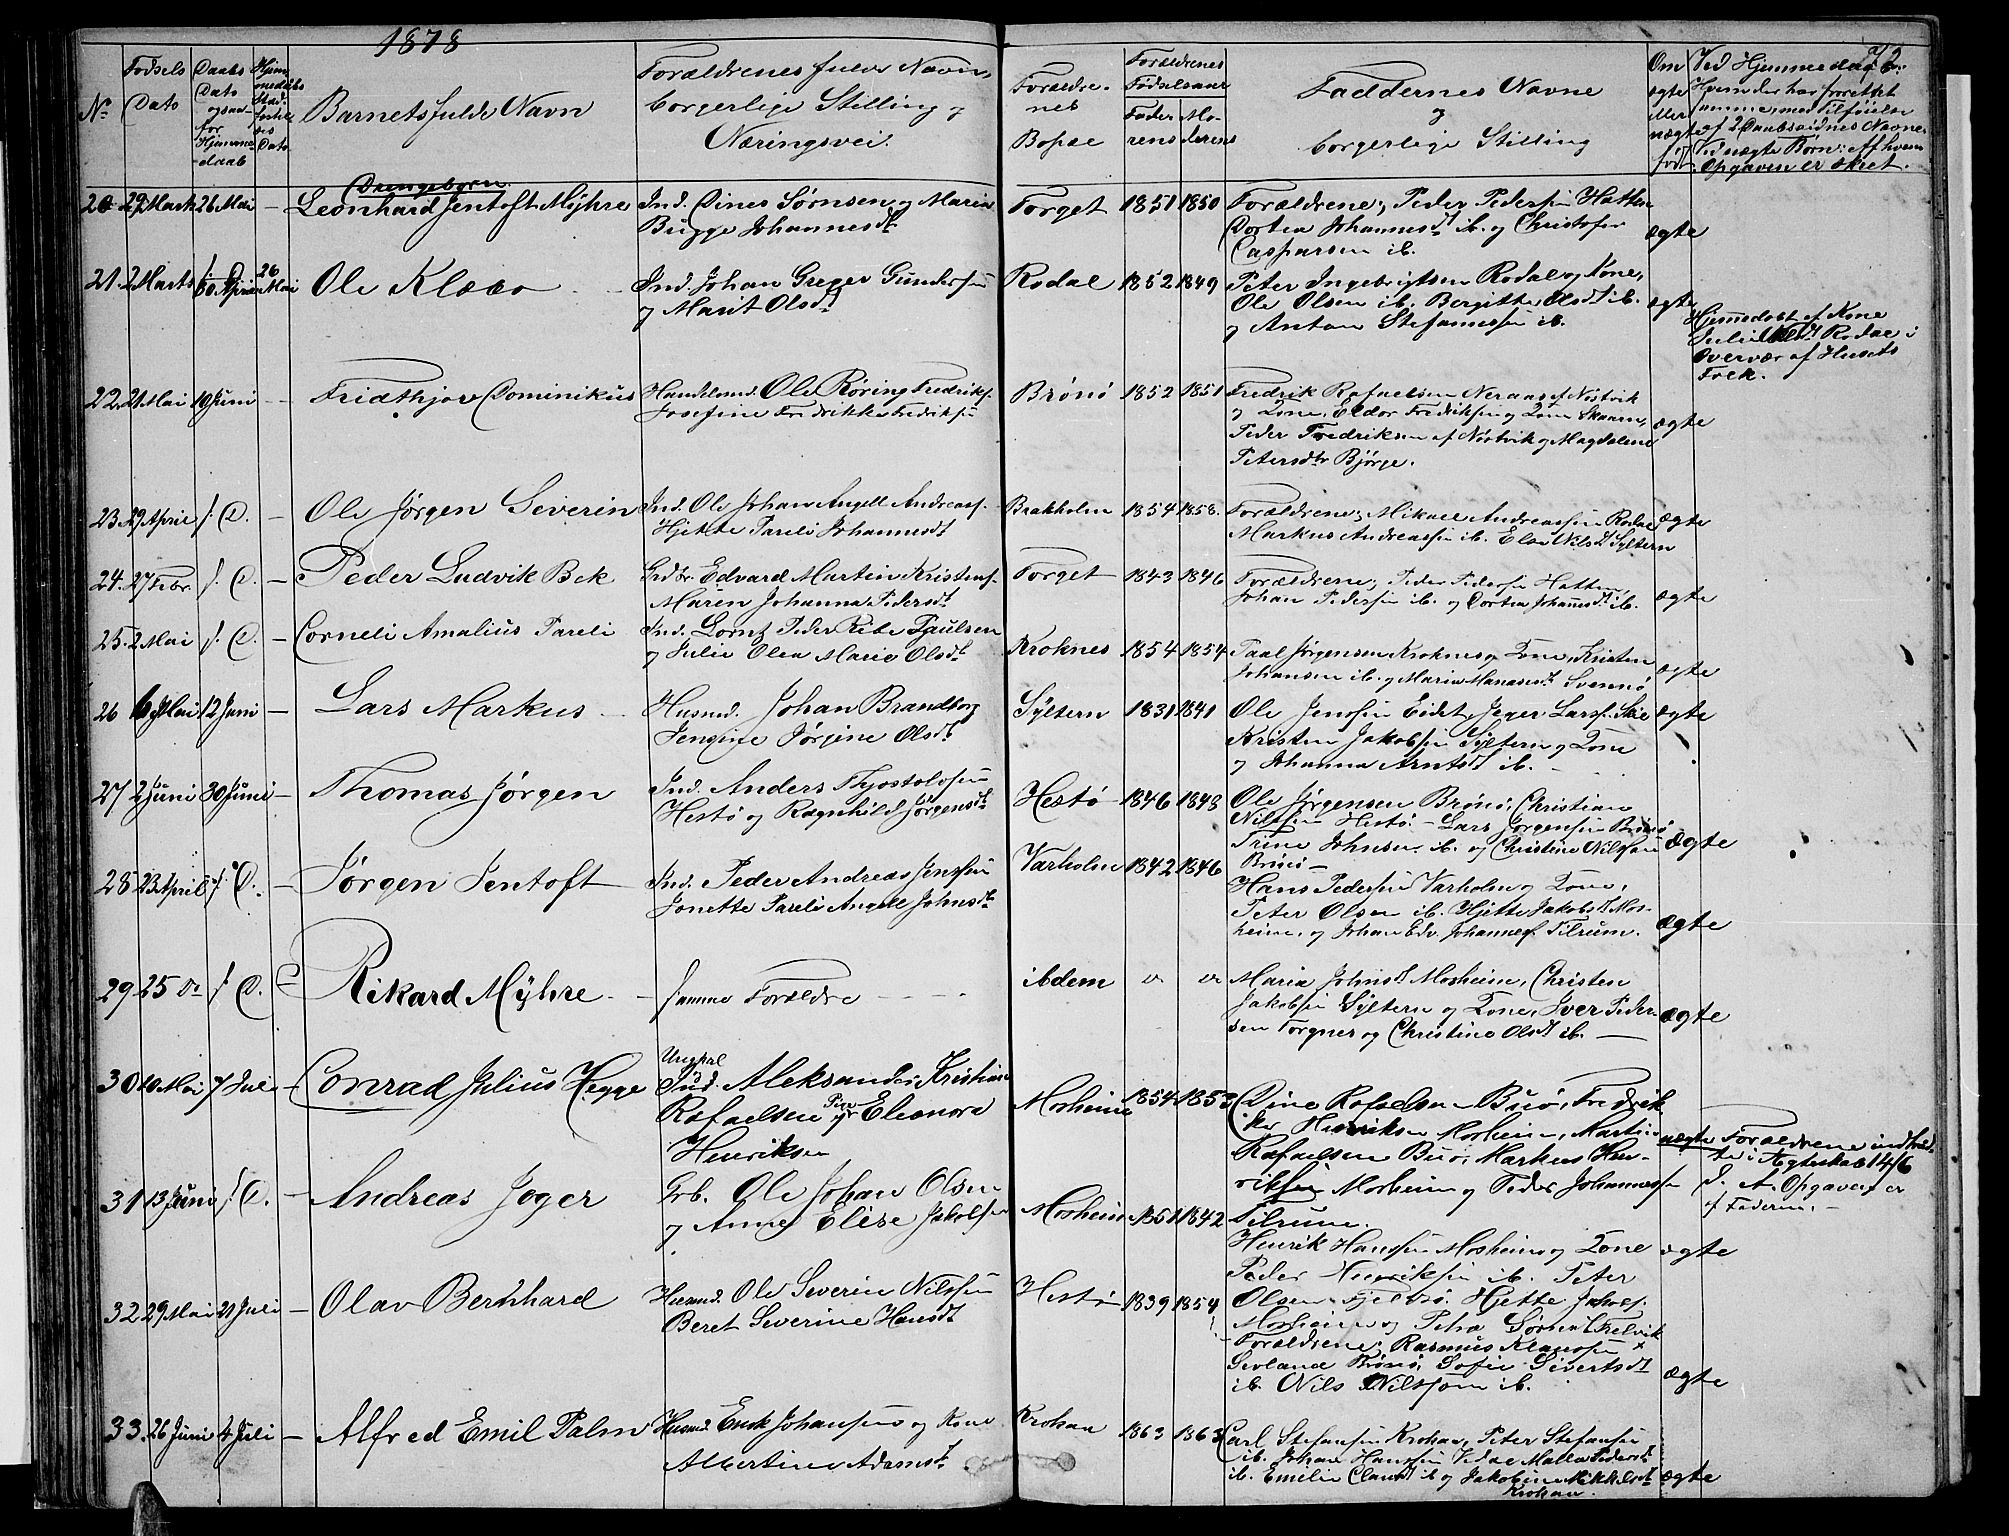 1878
72.
No
Fødsels Dato
Daabs Dato ogsaa for Hjemmedaab
Barnets fulde Navn
Forældrenes fulde Navn, borgerlige Stilling og Næringsvei.
Forældrenes Bopæl
Forældrenes Fødselsaar
Faderens
Moderens
Faddernes Navne og borgerlige Stilling
Om ægte eller uægte født
Ved Hjemmedaab: Hvem der har forrettet samme, med Tilføielse af 2 Daabsvidnes Navne. Ved uægte Børn: af hvem Opgaven er skeet.
Drengebørn.
20 29 Marts 26 Mai - Leonhard Jentoft Myhre
Ind. Dines Sørnsen og Maria
Bugge Johannesdt
Torget 1851 1850
Forældrene, Peder Pedersen Hatten
Dortea Johannesdt ib. og Christofer
Casparsen ib.
ægte
21. 2 Marts 30 April 26 Mai Ole Klæbo
Ind. Johan Greger Gundersen
og Marit Olsdt
Rodal 1852 1849
Peter Ingebrigtsen Rodal og Kone,
Ole Olsen ib. Bergitte Olsdt ib.
og Anton Stefanussen ib.
ægte
Hjemedøbt af Kone
Julie Olsdt Rodal i
Overvær af Husets
Folk.
22. 21 Mai 10 Juni - Fridthjov Dominikus
Handelsmd. Ole Røring Fredriks.
Josefine Fredrikke Fredriksen
Brønø 1852 1851
Fredrik Rafaelsen Neraas af Nøstvik
og Kone, Eldor Fredriksen og Kone Skaaren,
Peder Fredriksen af Nøstvik og Magdalene
Petersdtr Bjørge.
ægte
23. 29 April s. D. - Ole Jørgen Severin
Ind. Ole Johan Angell Andreass.
Hjette Pareli Johannesdt
Brakholm 1854 1858.
Forældrene, Mikael Andreassen Rodal
Markus Andreassen ib. Elen Nilsdt Syltern
ægte
24. 27 Febr. s. D. - Peder Ludvik Bek
Edvard Martin Kristens.
Maren Johanna Pedersdt
Torget 1843 1846
Forældrene, Peder Pedersen Hatten
Johan Pedersen ib. og Dortea Johannesdt ib.
ægte
25. 2 Mai s. D. - Corneli Amalius Pareli
Ind. Lorntz Peder Ribe Paulsen
og Julie Olea Marie Olsdt
Kroknes 1854 1854
Paal Jørgensen Kroknes og Kone, Kristen
Johansen ib. og Maria Manassdt Svennø
ægte
26 6 Mai 12 Juni - Lars Markus
Husmd. Johan Brandborg
Jengine Jørgine Olsdt
Syltern 1831 1841
Ole Jensen Eidet, Jeger Larss. Skie
Kristen Jakobsen Syltern og Kone
og Johanna Arntsdt ib.
ægte
27 2 Juni 30 Juni - Thomas Jørgen
Ind. Anders Thjostolvsen
Hestø og Ragnhild Jørgensdt
Hestø 1846 1848
Ole Jørgensen Brønø, Christian
Nilsen Hestø. - Lars Jørgensen Brønø
Trine Johnsen ib. og Christine Nilssen
Brønø -
ægte
28 23 April s. D. - Jørgen Jentoft
Ind. Peder Andreas Jenssen
Jonette Pareli Angell Johnsdt
Varholm 1842 1846
Hans Pedersen Varholm og Kone,
Peter Olsen ib. Hjette Jakobsdt Mosheim, og Johan Edv. Johannes. Tilrum.
ægte
29 25 do s. D. - Rikard Myhre
samme Forældre
ibdem
Maria Johnsdt Mosheim, Christen
Jakobsen Syltern og Kone, Iver Pedersen Torgnes og Christine Olsdt ib.
ægte
30 10 Mai 7 Juli - Conrad Julius Hegge
Ungkal
Ind. Aleksander Kristian
Rafaelsen og Pige Eleonora
Henriksen
Mosheim 1854 1853
Dine Rafaelsen Buø, Fredrik
Henriksen Mosheim, Martin
Rafaelsen Buø, Markus Henriksen Mosheim og Peder Johannessen
Tilrum.
uægte
Forældrene indtraadte i Ægteskab 14/6
d. A. Opgaven er
af Faderen. -
31 13 Juni s. D. - Andreas Joger
Grb. Ole Johan Olsen
og Anne Elise Jakobsen
Mosheim 1851 1842
Henrik Hanssen Mosheim og Kone
Peder Henriksen ib. Peter
Olsen Hjette Jakobs.
Mosheim og Petra Sørnsdt
ægte
32 29 Mai 21 Juli - Olav Bernhard
Husmd. Ole Severin Nilssen
Beret Severine Hansdt
Hestø 1839 1854
Forældrene, Rasmus Klausen
Brønø, Sofie Sivertsdt
ib. Nils Nilssen ib.
ægte
33. 26 Juni 4 Juli - Alfred Emil Palm
Husmd Enok Johansen og Kone
Albertine Adamsdt
Krokan 1863 1863
Carl Stefansen Krokan, Peter Stefansen
ib. Johan Hanssen Malla Pedersdt
ib. Emilie Clausdt ib og Jakobine Mikkelsdt
Krokan.
ægte